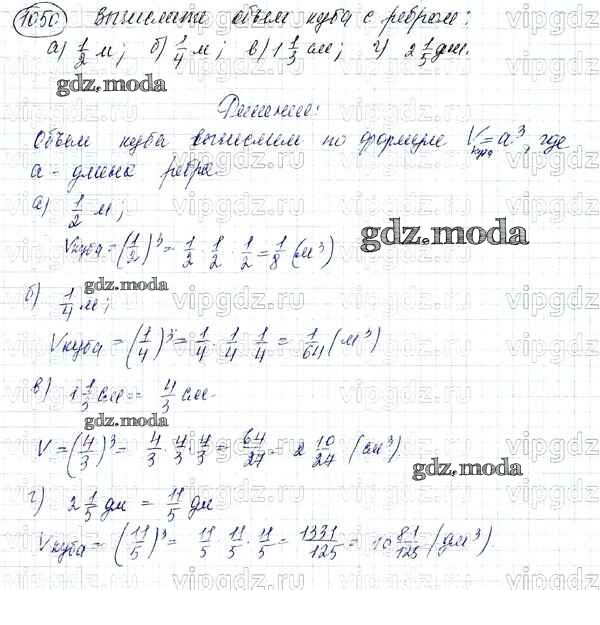 1050 Вычислите объем куба с ребром:
а) 1/2 м; б) 1/4 м; в) 1 1/3 см; г) 2 1/5 дм.
gdz.moda
Решение:
Объем куба вычислим по формуле Vкуба = a³, где
а - длина ребра.
а) 1/2 м;
gdz.moda
Vкуба = (1/2)³ = 1/2 · 1/2 · 1/2 = 1/8 (м³)
vipgdz.ru
б) 1/4 м;
Vкуба = (1/4)³ = 1/4 · 1/4 · 1/4 = 1/64 (м³)
в) 1 1/3 см = 4/3 см
gdz.moda
V = (4/3)³ = 4/3 · 4/3 · 4/3 = 64/27 = 2 10/27 (см³)
gdz.moda
г) 2 1/5 дм = 11/5 дм
Vкуба = (11/5)³ = 11/5 · 11/5 · 11/5 = 1331/125 = 10 81/125 (дм³)